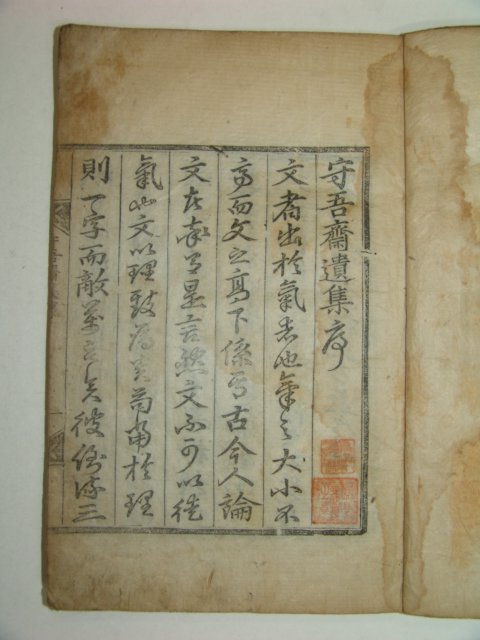 守吾齋遺集序
文者出於氣者也氣之大小不
齊而文之高下係焉古今人論
文者率多是言然文不可以徒
氣也文以理致爲貴苟當於理
則一字而敵萬言矣彼徒流三